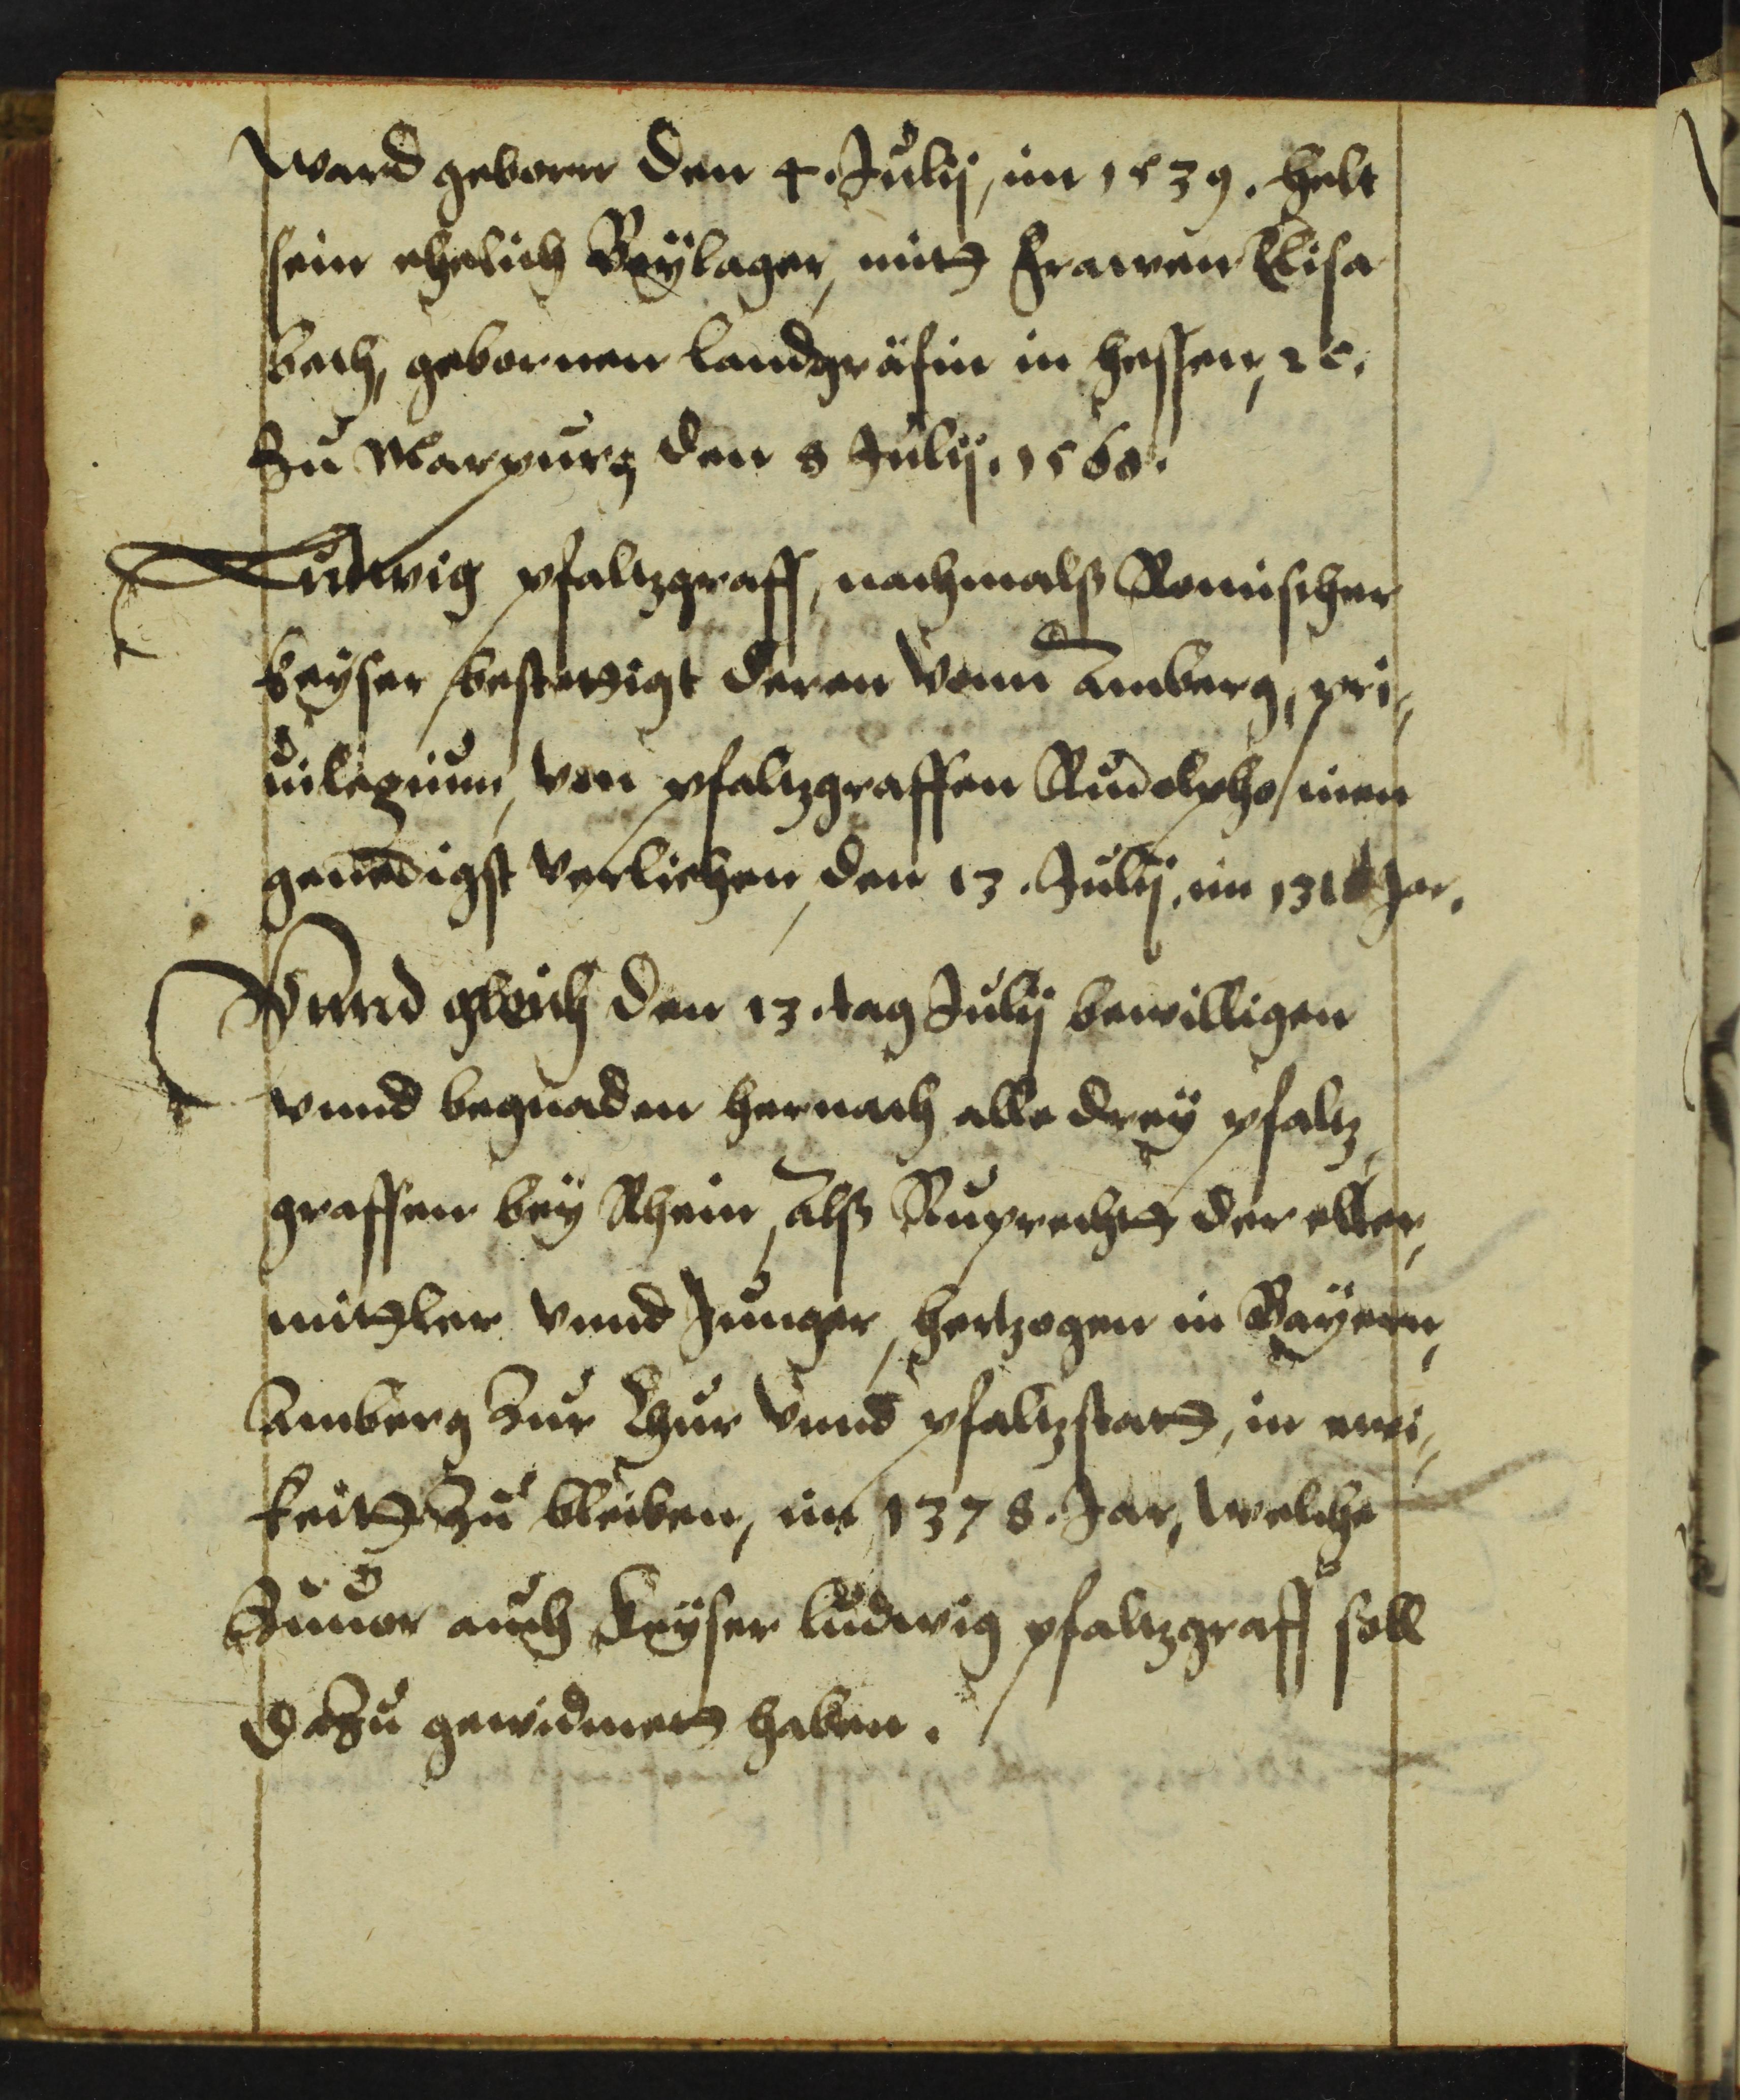 Ward geborn den 4. Julij, im 1539. helt
sein ehelich Beÿlager, mitt Frawen Elisa
beth, gebornen Landgräfin in Hessen, ꝛc.
Zu Marpurg den 8 Julij. 1560.
Ludwig pfaltzgraff, nachmalß Romischer
keÿser bestettigt deren vonn Amberg, pri¬
uilegium, von pfaltzgraffen Rudolpho inen
genedigst verliehen, den 13. Julij. im Jar.
Vnnd gleich den 13. tag Julij bewilligen
vnnd begnaden hernach alle dreÿ pfaltz
graffen beÿ Rhein, alß Ruprecht der elter,
mittler vnnd Junger, hertzogen in Baÿern,
Amberg zur Chur vnnd pfaltzstatt, in ewi¬
keitt zu bleiben, im 1378. Jar, welche
Zuuor auch Keÿser Ludwig pfaltzgraff soll
dazu gewidmett haben.